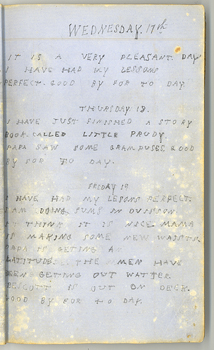 WEDNESDAY, 17th
IT IS A VERY PLEASANT DAY
I HAVE HAD MY LESSONS
PERFECT. GOOD BY FOR TO DAY.
THURSDAY 18.
I HAVE JUST FINISHED A STORY
BOOK CALLED LITTLE PRUDY.
PAPA SAW SOME GRAMPUSES GOOD
BY FOR TO DAY.
FRIDAY 19
I HAVE HAD MY LESONS PERFECT.
I AM DOING SUMS IN DIVISION.
I THINK IT IS NICE. MAMA
IS MAKING SOME NEW WAISTS.
PAPA IS GETING A
LATITUDE. THE MEN HAVE
BEEN GETTING OUT WATTER
IS OUT ON DECK.
GOOD BY FOR TO DAY.